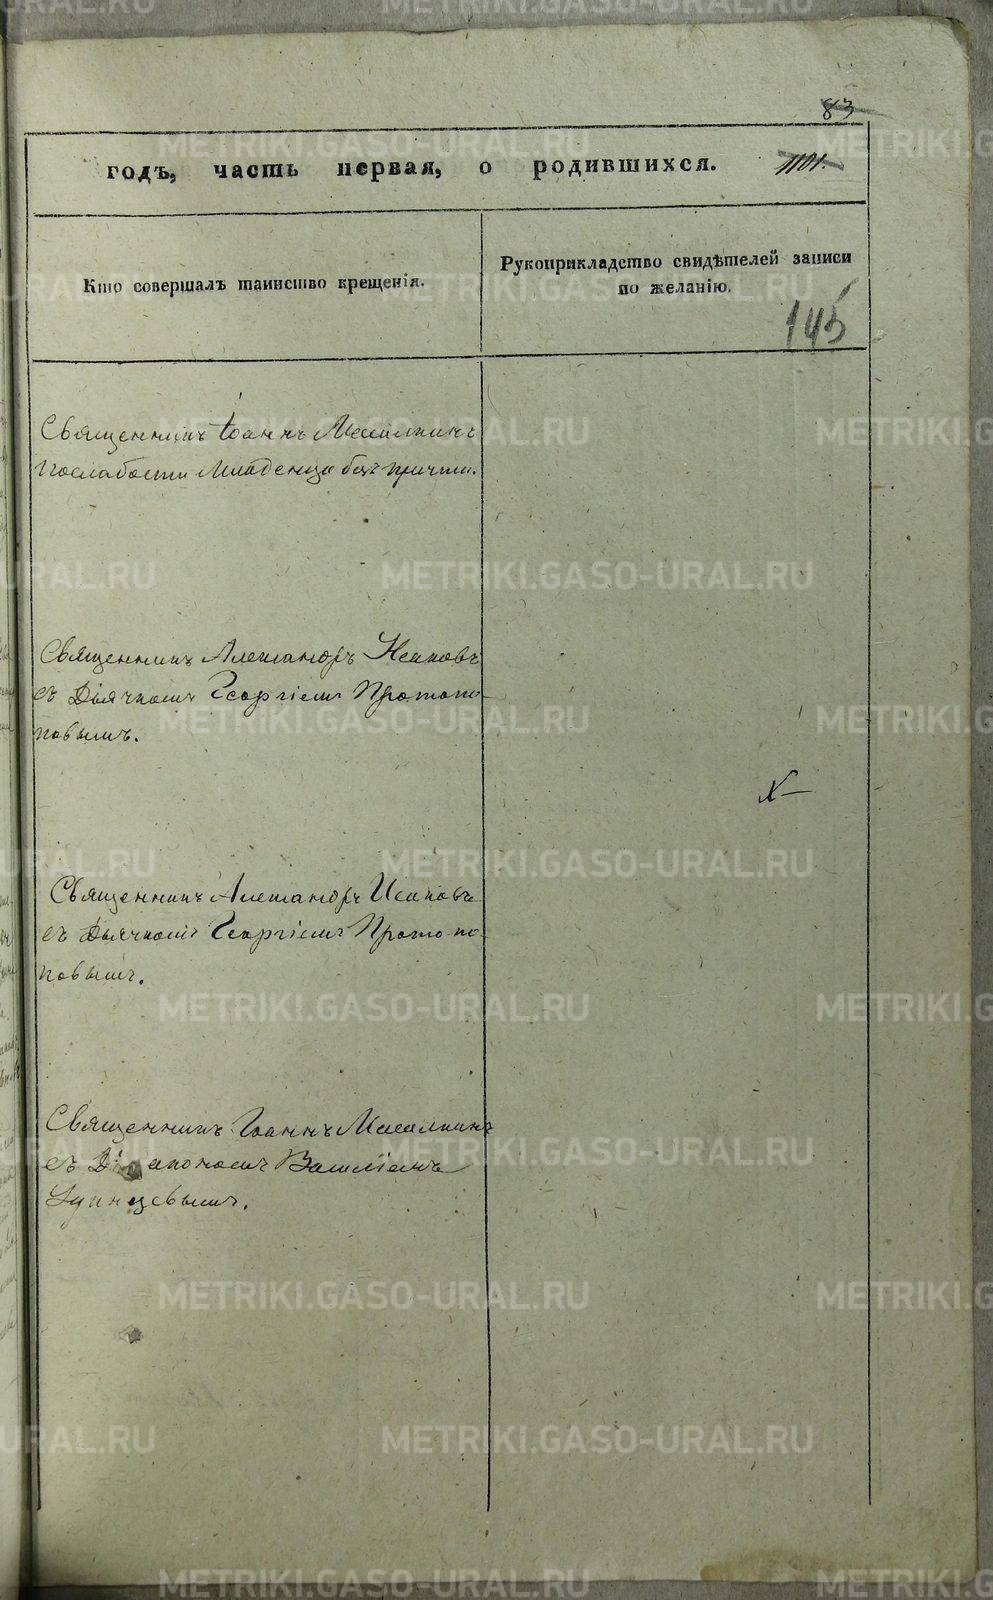 83
годъ, часть первая, о родившихся.
Кто совершалъ таинство крещенія.
Рукоприкладство свидѣтелей записи
по желанію.
145
Священникъ Іоаннъ
Послабости Младенца безъ причта.
Священникъ Александръ
съ Дьячкомъ Георгіемъ Протопо-
повымъ.
Священникъ Александръ Исаковъ
съ Дьячкомъ Георгіемъ Протопо-
повымъ.
Священникъ Іоаннъ
съ Діакономъ Василіемъ
METRIKI.GASO-URAL.RU